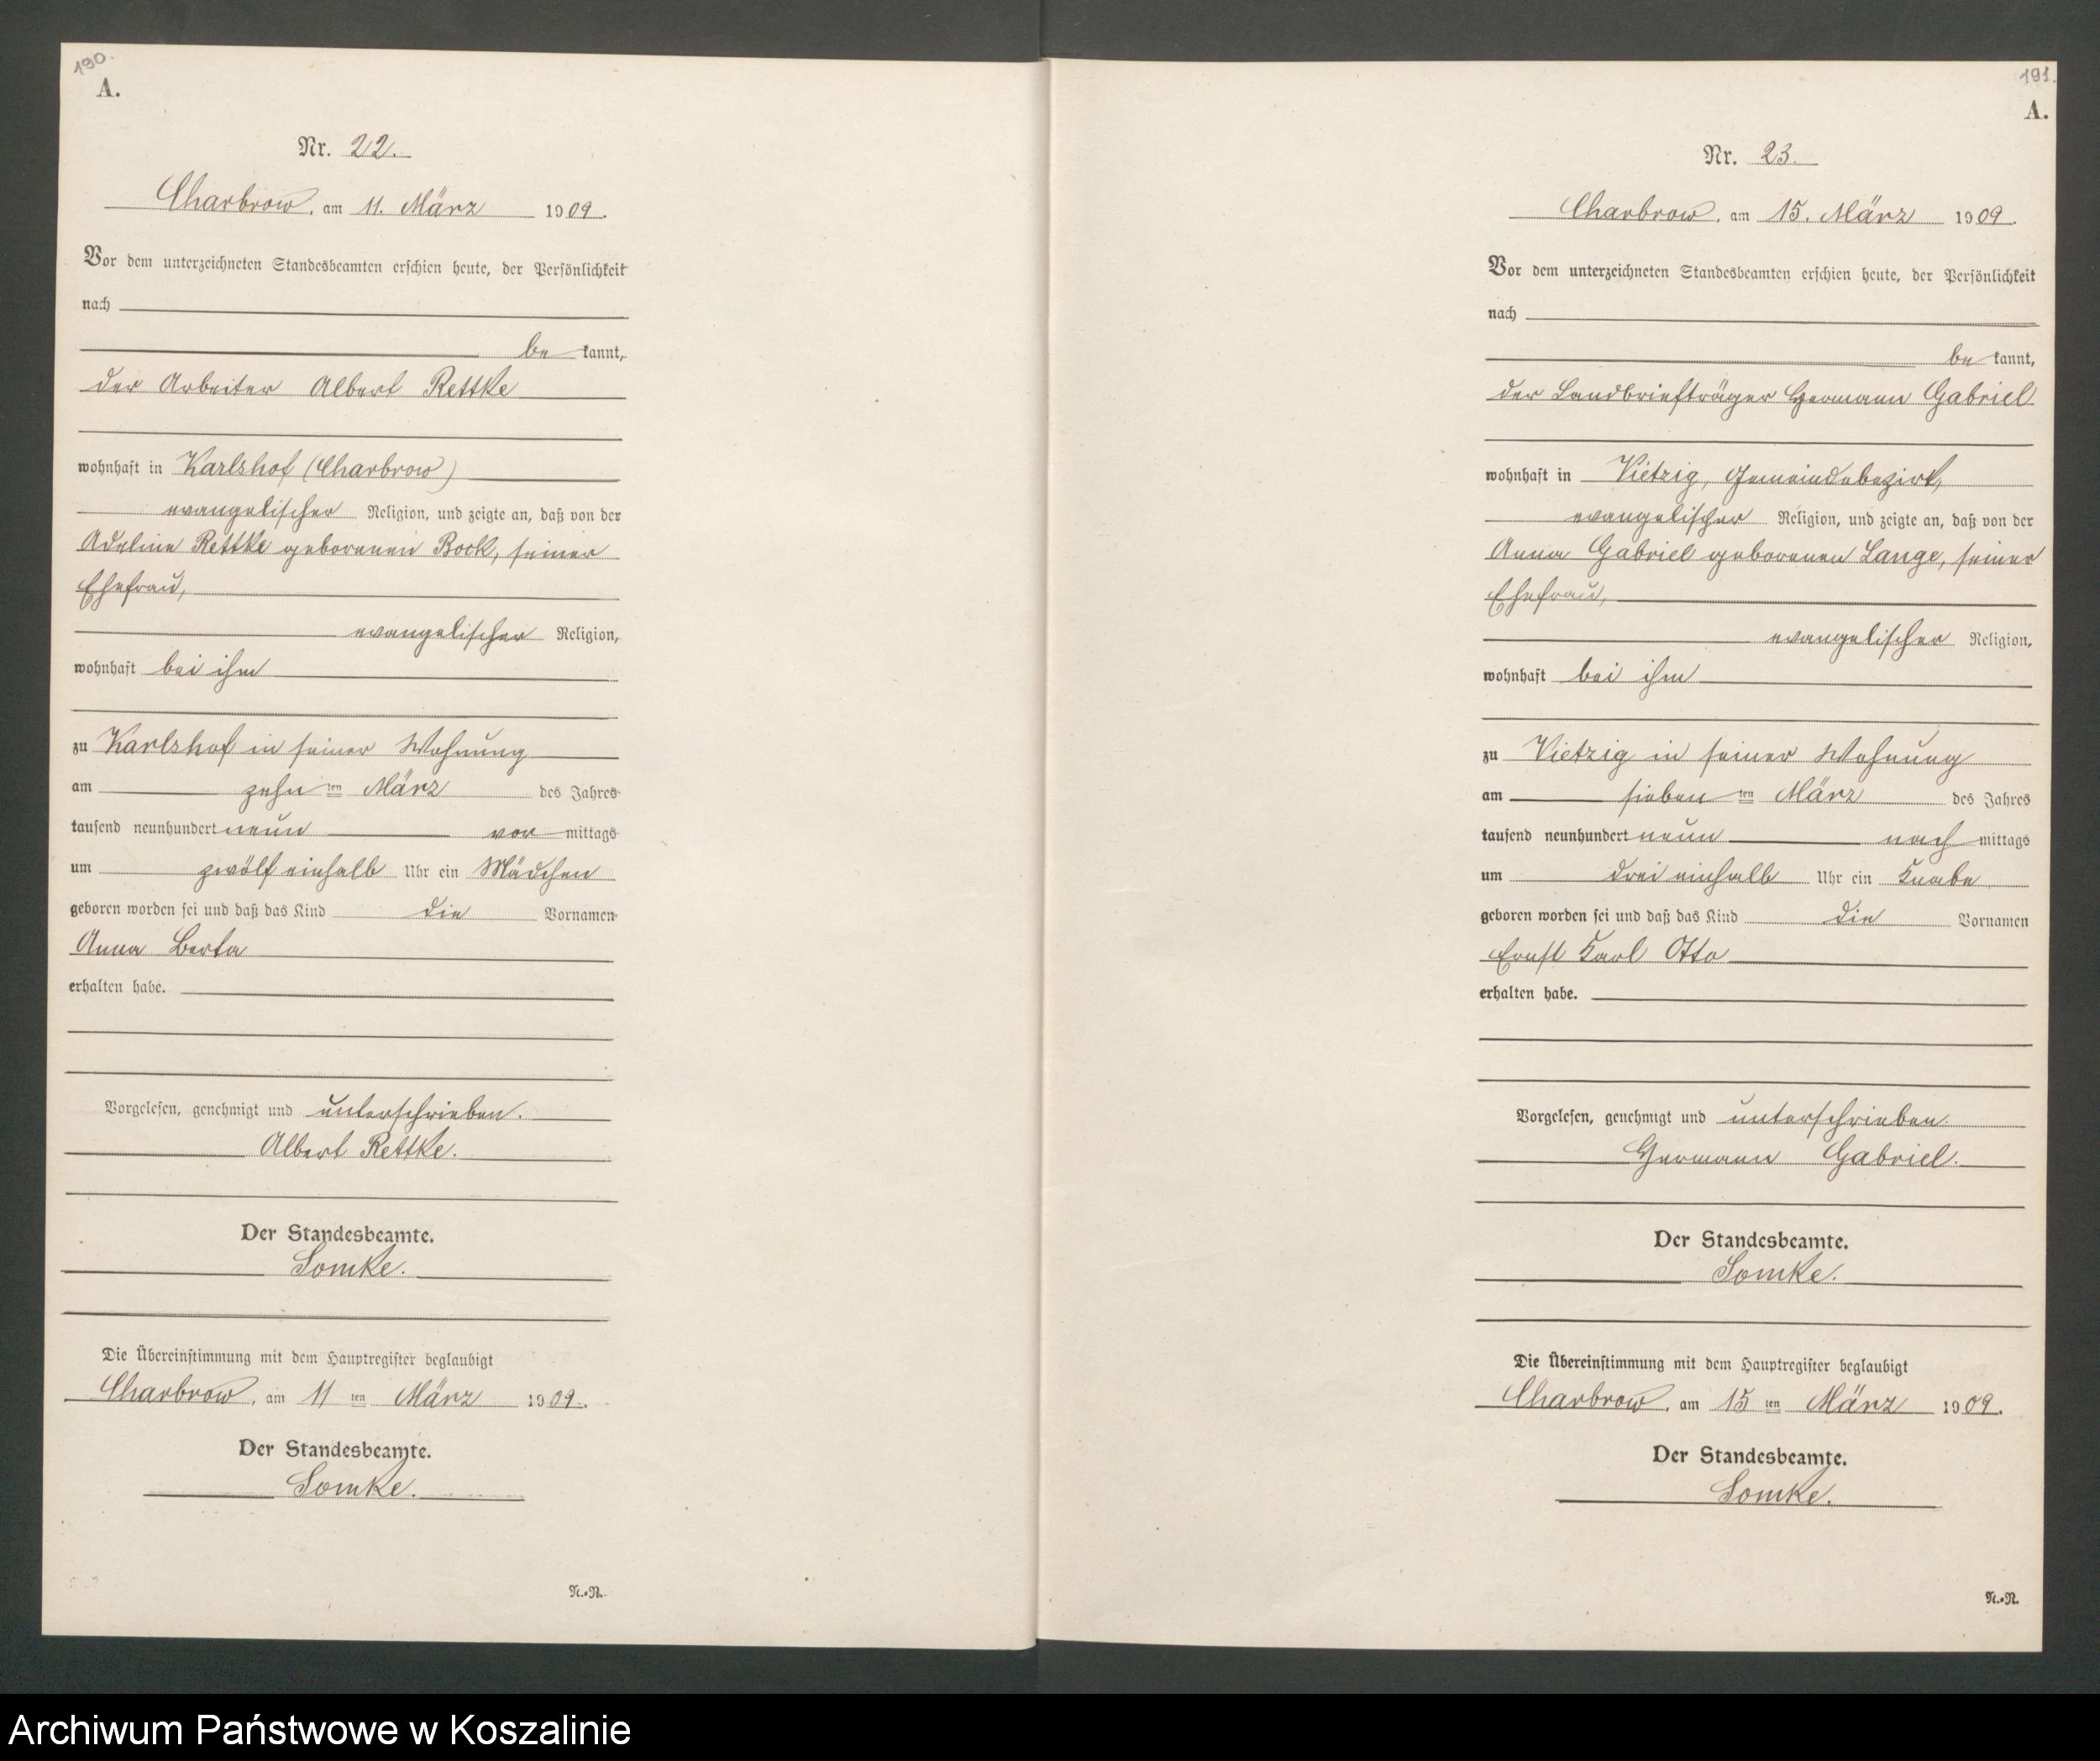 190.
A.
Nr. 22.
Charbrow, am 11. März 1909.
Vor dem unterzeichneten Standesbeamten erschien heute, der Persönlichkeit
nach
be kannt,
der Arbeiter Albert Rettke
wohnhaft in Karlshof (Charbrow)
evangelischer Religion, und zeigte an, daß von der
Adeline Rettke geborenen Bock, seiner
Ehefrau,
evangelischer Religion,
wohnhaft bei ihm
zu Karlshof in seiner Wohnung
am zehn ten März des Jahres
tausend neunhundert neun vor mittags
um zwölf einhalb Uhr ein Mädchen
geboren worden sei und daß das Kind die Vornamen
Anna Berta
erhalten habe.
Vorgelesen, genehmigt und unterschrieben.
Albert Rettke.
Der Standesbeamte.
Somke.
Die Übereinstimmung mit dem Hauptregister beglaubigt
Charbrow, am 11 ten März 1909.
Der Standesbeamte.
Somke.
N.-R.
191.
A.
Nr. 23.
Charbrow, am 15. März 1909.
Vor dem unterzeichneten Standesbeamten erschien heute, der Persönlichkeit
nach
be kannt,
der Landbriefträger Hermann Gabriel
wohnhaft in Vietzig, Gemeindebezirk,
evangelischer Religion, und zeigte an, daß von der
Anna Gabriel geborenen Lange, seiner
Ehefrau,
evangelischer Religion,
wohnhaft bei ihm
zu Vietzig in seiner Wohnung
am sieben ten März des Jahres
tausend neunhundert neun nach mittags
um drei einhalb Uhr ein Knabe
geboren worden sei und daß das Kind die Vornamen
Ernst Karl Otto
erhalten habe.
Vorgelesen, genehmigt und unterschrieben.
Hermann Gabriel.
Der Standesbeamte.
Somke.
Die Übereinstimmung mit dem Hauptregister beglaubigt
Charbrow, am 15 ten März 1909.
Der Standesbeamte.
Somke.
N.-R.
Archiwum Państwowe w Koszalinie